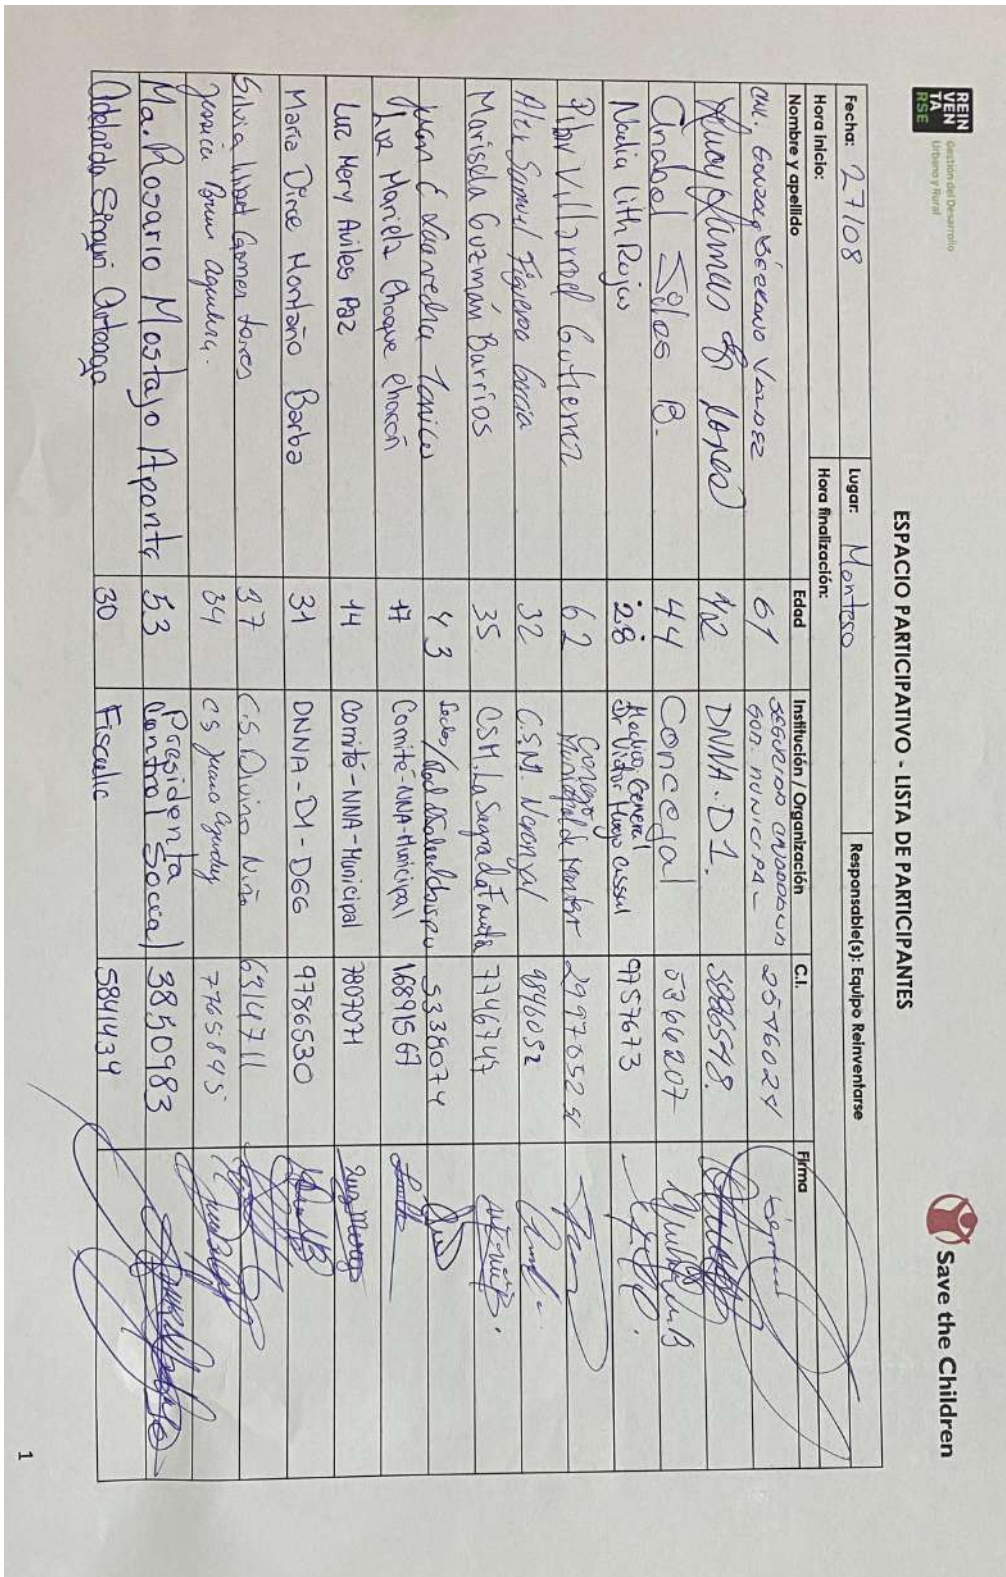 REIN
VEN
TA
RSE
Gestión del Desarrollo
Urbano y Rural
Save the Children
ESPACIO PARTICIPATIVO - LISTA DE PARTICIPANTES
Fecha: 27/08 Lugar: Montero Responsable(s): Equipo Reinventarse
Hora Inicio: Hora finalización:
Nombre y apellido Edad Institución / Organización C.I. Firma
61 SEGURIDAD CIUDADANA GOB. MUNICIPAL 2546024
42 DNNA. D1. 3886548.
Anabel Soles B. 44 Concejal 5366207
Nadia Lith Rojas 28 Medico General Dr Victor Hugo 9757673
Villarroel Gutierrez 62 Concejo Municipal de Montero 2997052
Alex Samuel Figueroa Garcia 32 C.S.M. Naranjal 9846092
Marisela Guzmán Barrios 35 CSM. La Sagrada Familia 7746747
Juan C Saavedra 43 5338074
Luz Mariela Choque Chacón 17 Comité-NNA-Municipal 16891567
Luz Mery Aviles Paz 14 Comité-NNA-Municipal 7807071
Maria Dirce Montaño Barba 31 DNNA-D1-DGG 9786530
Silvia Libet Gomez Torres 37 C.S. Divino Niño 6314711
Jessica 34 CS 7765845
Ma. Rosario Mostajo Aponte 53 Presidenta Control Social 3850983
Adelaida 30 Fiscalia 5841434
1